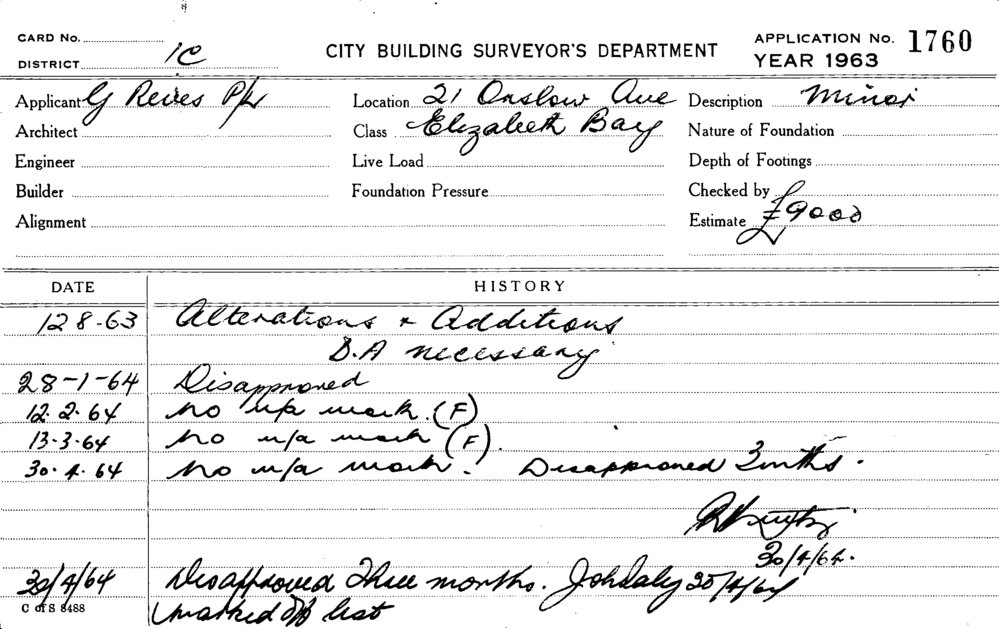 CARD No.
DISTRICT 1C
CITY BUILDING SURVEYOR'S DEPARTMENT
APPLICATION No. 1760
YEAR 1963
Applicant G Reives P/L
Location 21 Onslow Ave
Description Minor
Architect
Class Elizabeth Bay
Nature of Foundation
Engineer
Live Load
Depth of Footings
Builder
Foundation Pressure
Checked by
Alignment
Estimate £9000
DATE HISTORY
12 8-63 Alterations & Additions
D.A necessary
28-1-64 Disapproved
12.2.64 No u/a work. (F)
13-3-64 No u/a work (F).
30.4.64 No u/a work. Disapproved 3 mths.
30/4/64.
30/4/64 Disapproved Three months. 30/4/64
C of S 8488
Marked off list